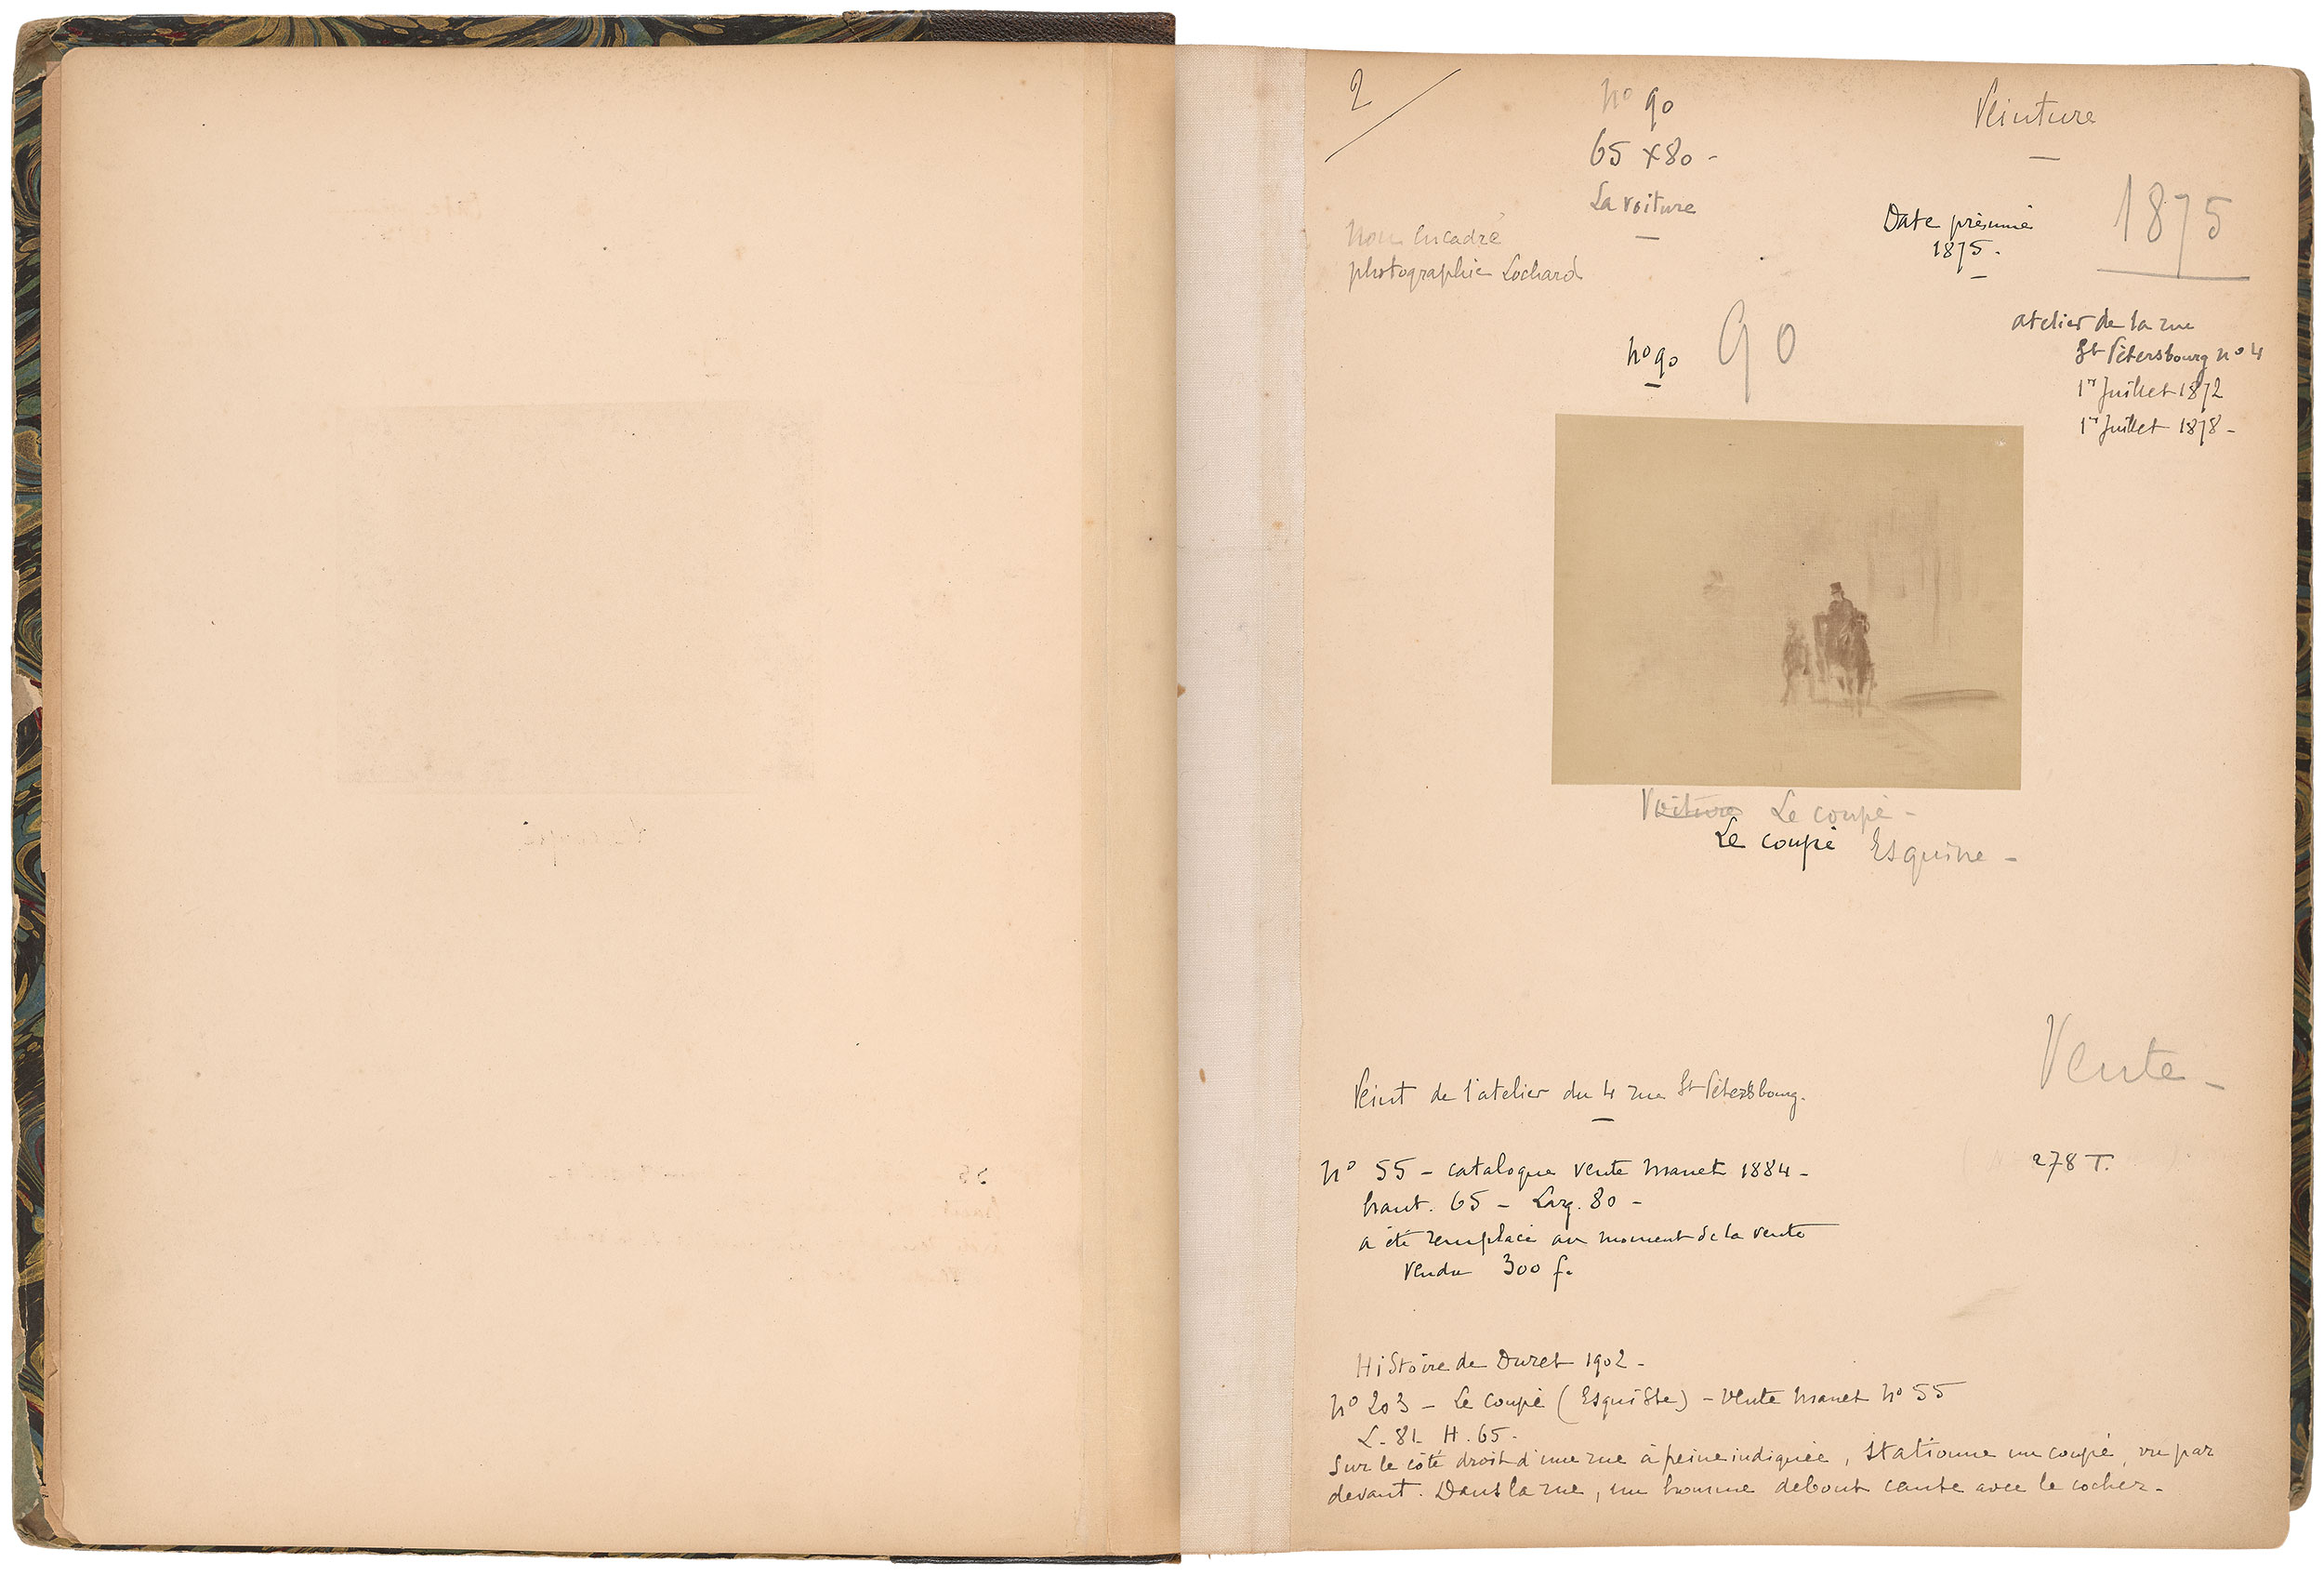 2
no 90
65 x 80 -
La voiture
Peinture
Date présumé
1875.
1875
non encadré
photographie Lochard
no 90
90
atelier de la rue
St Pétersbourg no 4
1er Juillet 1872
1er Juillet 1878 -
Voiture Le coupé -
Le coupé Esquisse -
Vente -
Peint de l'atelier du 4 rue St Pétersbourg.
no 55 - catalogue vente Manet 1884 -
278 T.
haut. 65 - Larg. 80 -
a été remplacé au moment de la vente
vendu 300 f.
Histoire de Duret 1902 -
no 203 - Le coupé (Esquisse) - Vente Manet no 55
L. 81. H. 65.
Sur le côté droit d'une rue à peine indiquée, stationne un coupé, vu par
devant. Dans la rue, un homme debout cause avec le cocher.